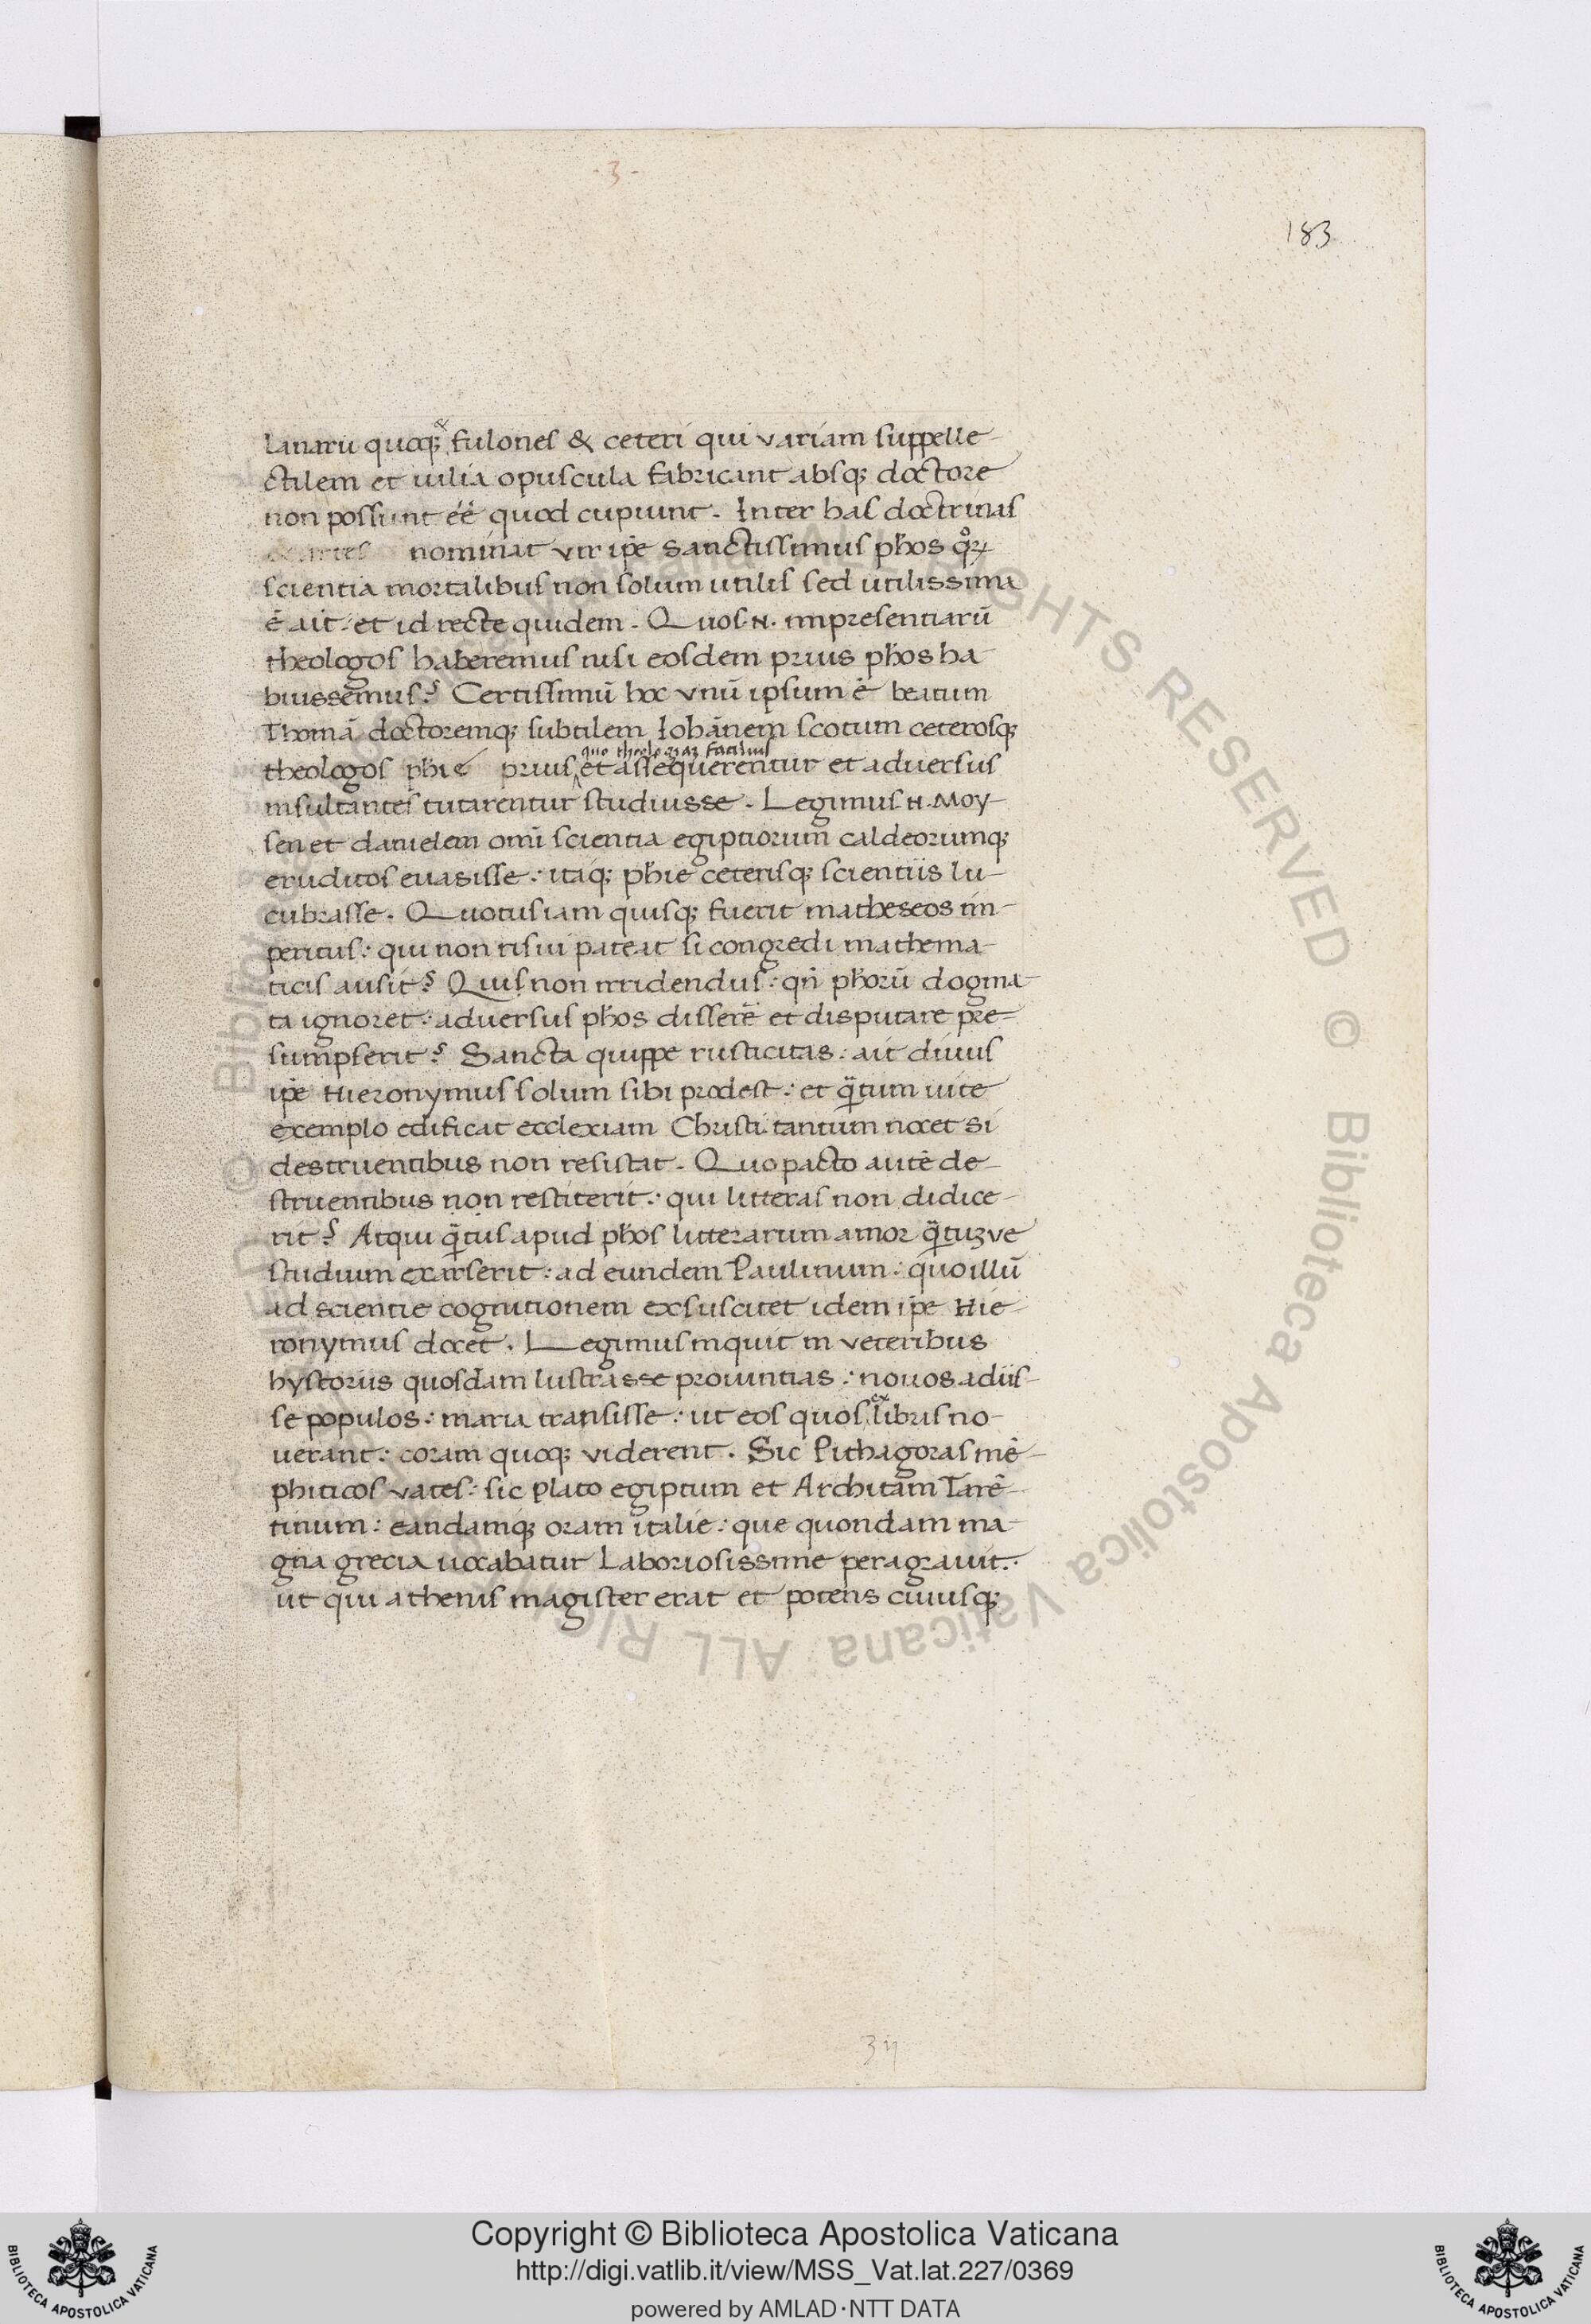 -3-
183
lanarū quoq; & fulones & ceteri qui variam suppelle-
ctilem et uilia opuscula fabricant absq; doctore
non possunt éé quod cupiunt. Inter has doctrinas
nominat vir ip̄e sanctissimus ph̄os qͦꝝ
scientia mortalibus non solum utilis sed utilissima
ē ait: et id recte quidem. Quos .N. impresentiarū
theologos haberemus nisi eosdem prius ph̄os ha-
buissemus? Certissimū hoc vnū ipsum ē beatum
Thomā doctoremq; subtilem Iohānem scotum ceterosq;
theologos ph̄ie prius quo theologiaꝫ facilius et assequerentur et aduersus
insultantes tutarentur studuisse. Legimus .N. Moy-
sen et danielem omī scientia egiptiorum caldeorumq;
eruditos euasisse: itaq; ph̄ie ceterisq; scientiis lu-
cubrasse. Quotus iam quisq; fuerit matheseos im-
peritus: qui non risui pateat si congredi mathema-
ticis ausit? Quis non irridendus: qn̄ ph̄orū dogma-
ta ignoret: aduersus ph̄os disserē et disputare pre-
sumpserit? Sancta quippe rusticitas: ait diuus
ip̄e Hieronymus solum sibi prodest: et q̄tum uite
exemplo edificat ecclexiam Christi. tantum nocet si
destruentibus non resistat. Quo pacto autē de-
struentibus non restiterit: qui litteras non didice-
rit? Atqui q̄tus apud ph̄os litterarum amor q̄tuꝫve
studium exarserit: ad eundem Paulinum: quo illū
ad scientie cognitionem exsuscitet idem ip̄e Hie-
ronymus docet. Legimus inquit in veteribus
hystoriis quosdam lustrasse prouintias: nouos adiis-
se populos: maria transisse: ut eos quos ex libris no-
uerant: coram quoq; viderent. Sic Pithagoras mē-
phiticos vates: sic plato egiptum et Architam Tarē-
tinum: eandamq; oram italie: que quondam ma-
gna grecia uocabatur laboriosissime peragrauit:
ut qui athenis magister erat et potens cuiusq;
Copyright © Biblioteca Apostolica Vaticana
http://digi.vatlib.it/view/MSS_Vat.lat.227/0369
powered by AMLAD·NTT DATA
BIBLIOTECA APOSTOLICA VATICANA
BIBLIOTECA APOSTOLICA VATICANA
© Biblioteca Apostolica Vaticana ALL RIGHTS RESERVED © Biblioteca Apostolica Vaticana ALL RIGHTS RESERVED